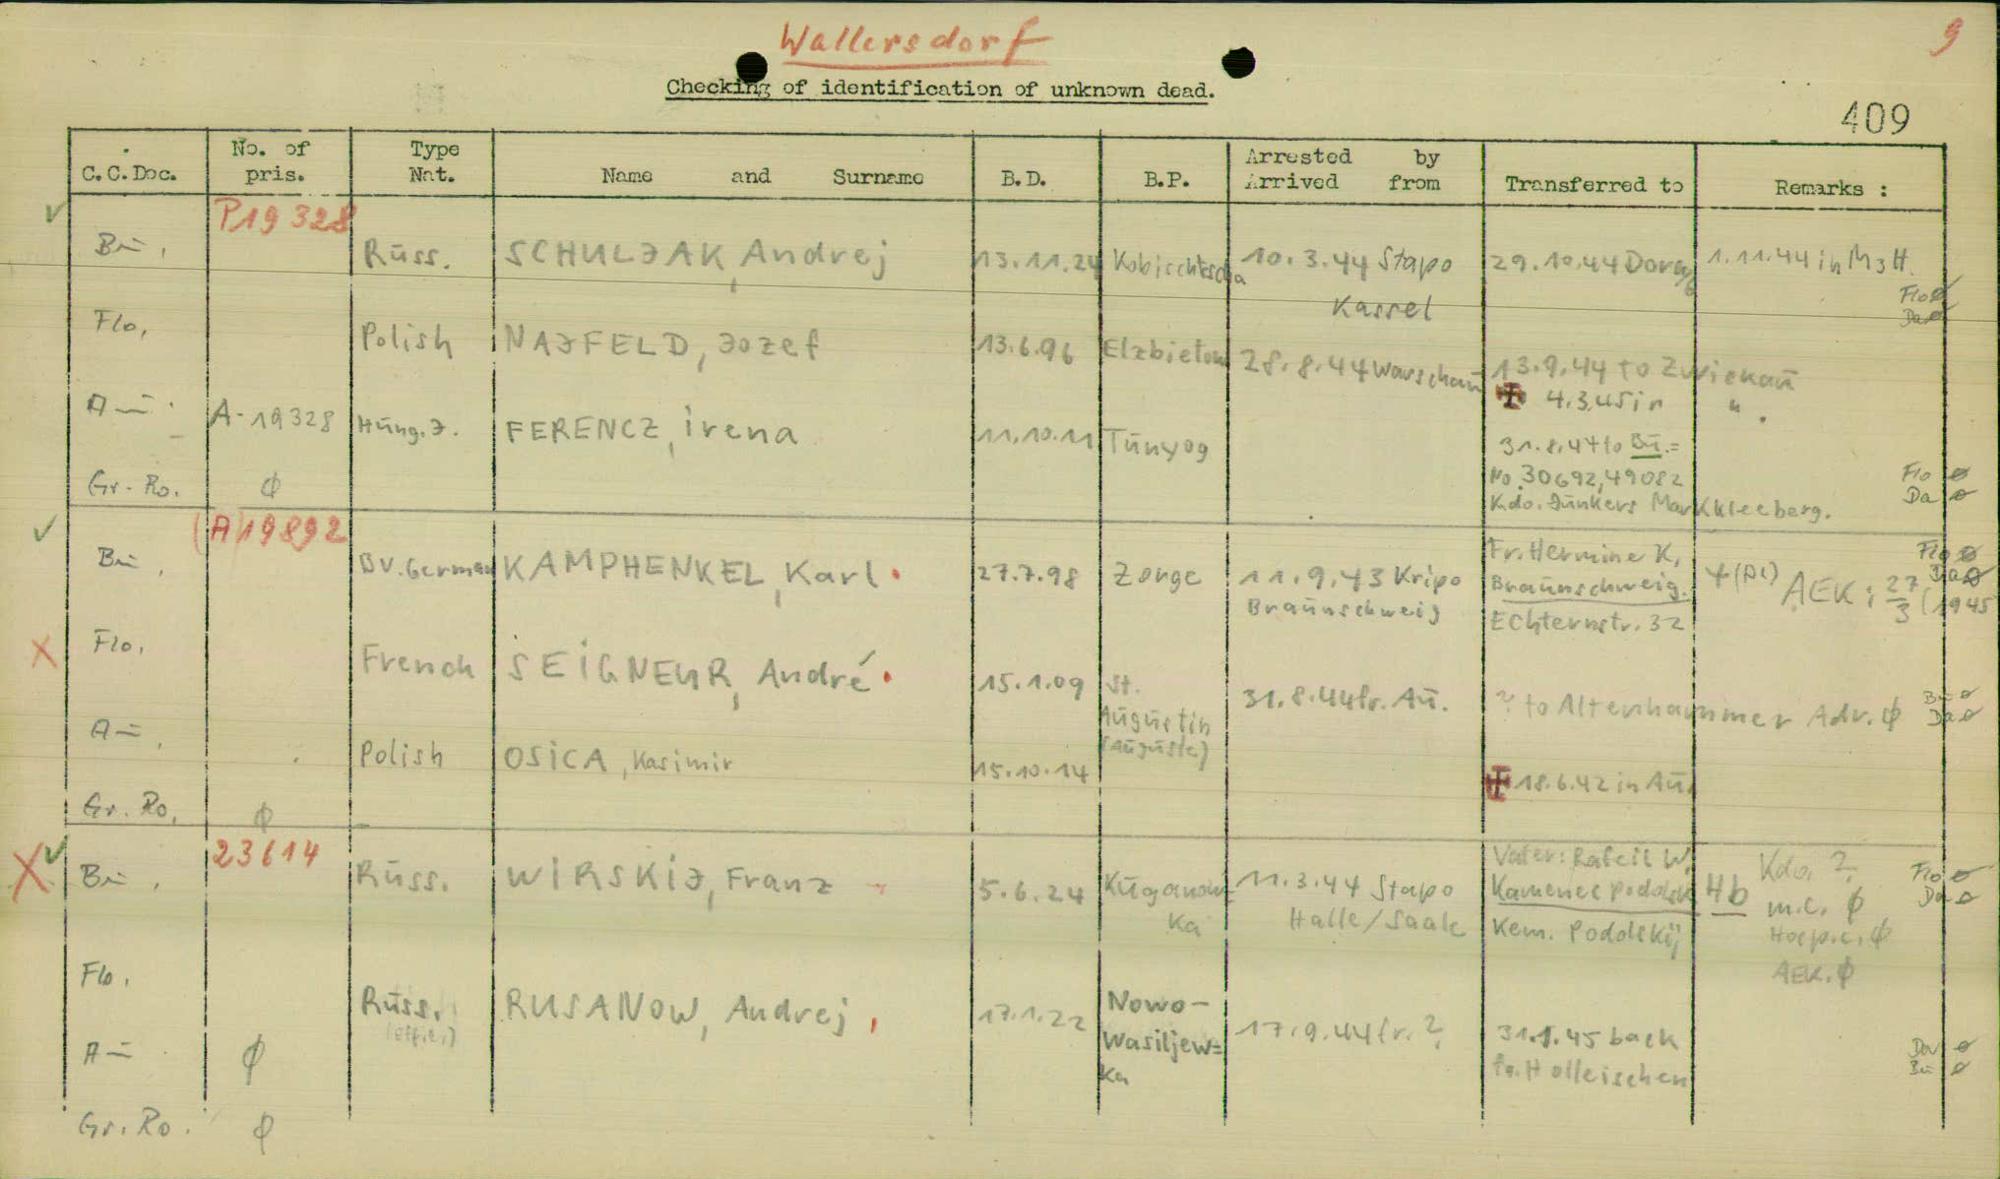 Wallersdorf
9
Checking of identification of unknown dead.
409
C.C.Doc. No. of pris. Type Nat. Name and Surname B.D. B.P. Arrested by Arrived from Transferred to Remarks :
P19328
Bū, Rūss. SCHULJAK, Andrej 13.11.24 10.3.44 Stapo Kassel 29.10.44 Dora 1.11.44 in
Flo Ø
Da Ø
Flo, Polish NAJFELD, Jozef 13.6.96 Elzbietow 28.8.44 Warschaū 13.9.44 to Zwickaū
✠ 4.3.45 in " .
Aū. A-19328 Hūng.J. FERENCZ, irena 11.10.11 Tūnyog 31.8.44 to Bū.=
No. 30692, 49082
Kdo. Jūnkers Markkleeberg.
Flo Ø
Da Ø
Gr.-Ro. Ø
(A)19892
Bū, BV. German KAMPHENKEL, Karl. 27.7.98 Zorge 11.9.43 Kripo Braūnschweig
Fr. Hermine K,
Braūnschweig.
Echternstr. 32
AEK: 27/3 (1945
Flo Ø
Da Ø
Flo, French SEIGNEUR, André. 15.1.09 St. Aūgūstin 31.8.44 fr. Aū. ? to Altenhammer Adr. Ø
Bū Ø
Da Ø
Aū, Polish OSiCA, Kasimir 15.10.14 ✠ 18.6.42 in Aū.
Gr. Ro, Ø
23614
Bū, Rūss. WiRSKiJ, Franz 5.6.24 Kūganowka 11.3.44 Stapo Halle/Saale
Vater: Rafeil W.
Kamenec Podolsk
Kem. Podolskij
Hb
Kdo. ?
m.c. Ø
Hosp.c. Ø
AEK. Ø
Flo Ø
Da Ø
Flo, Rūss. RUSANOW, Andrej, 17.1.22 Nowo-Wasiljew=ka 17.9.44 fr. ? 31.1.45 back fr. Holleischen
Da Ø
Bū Ø
Aū Ø
Gr. Ro. Ø